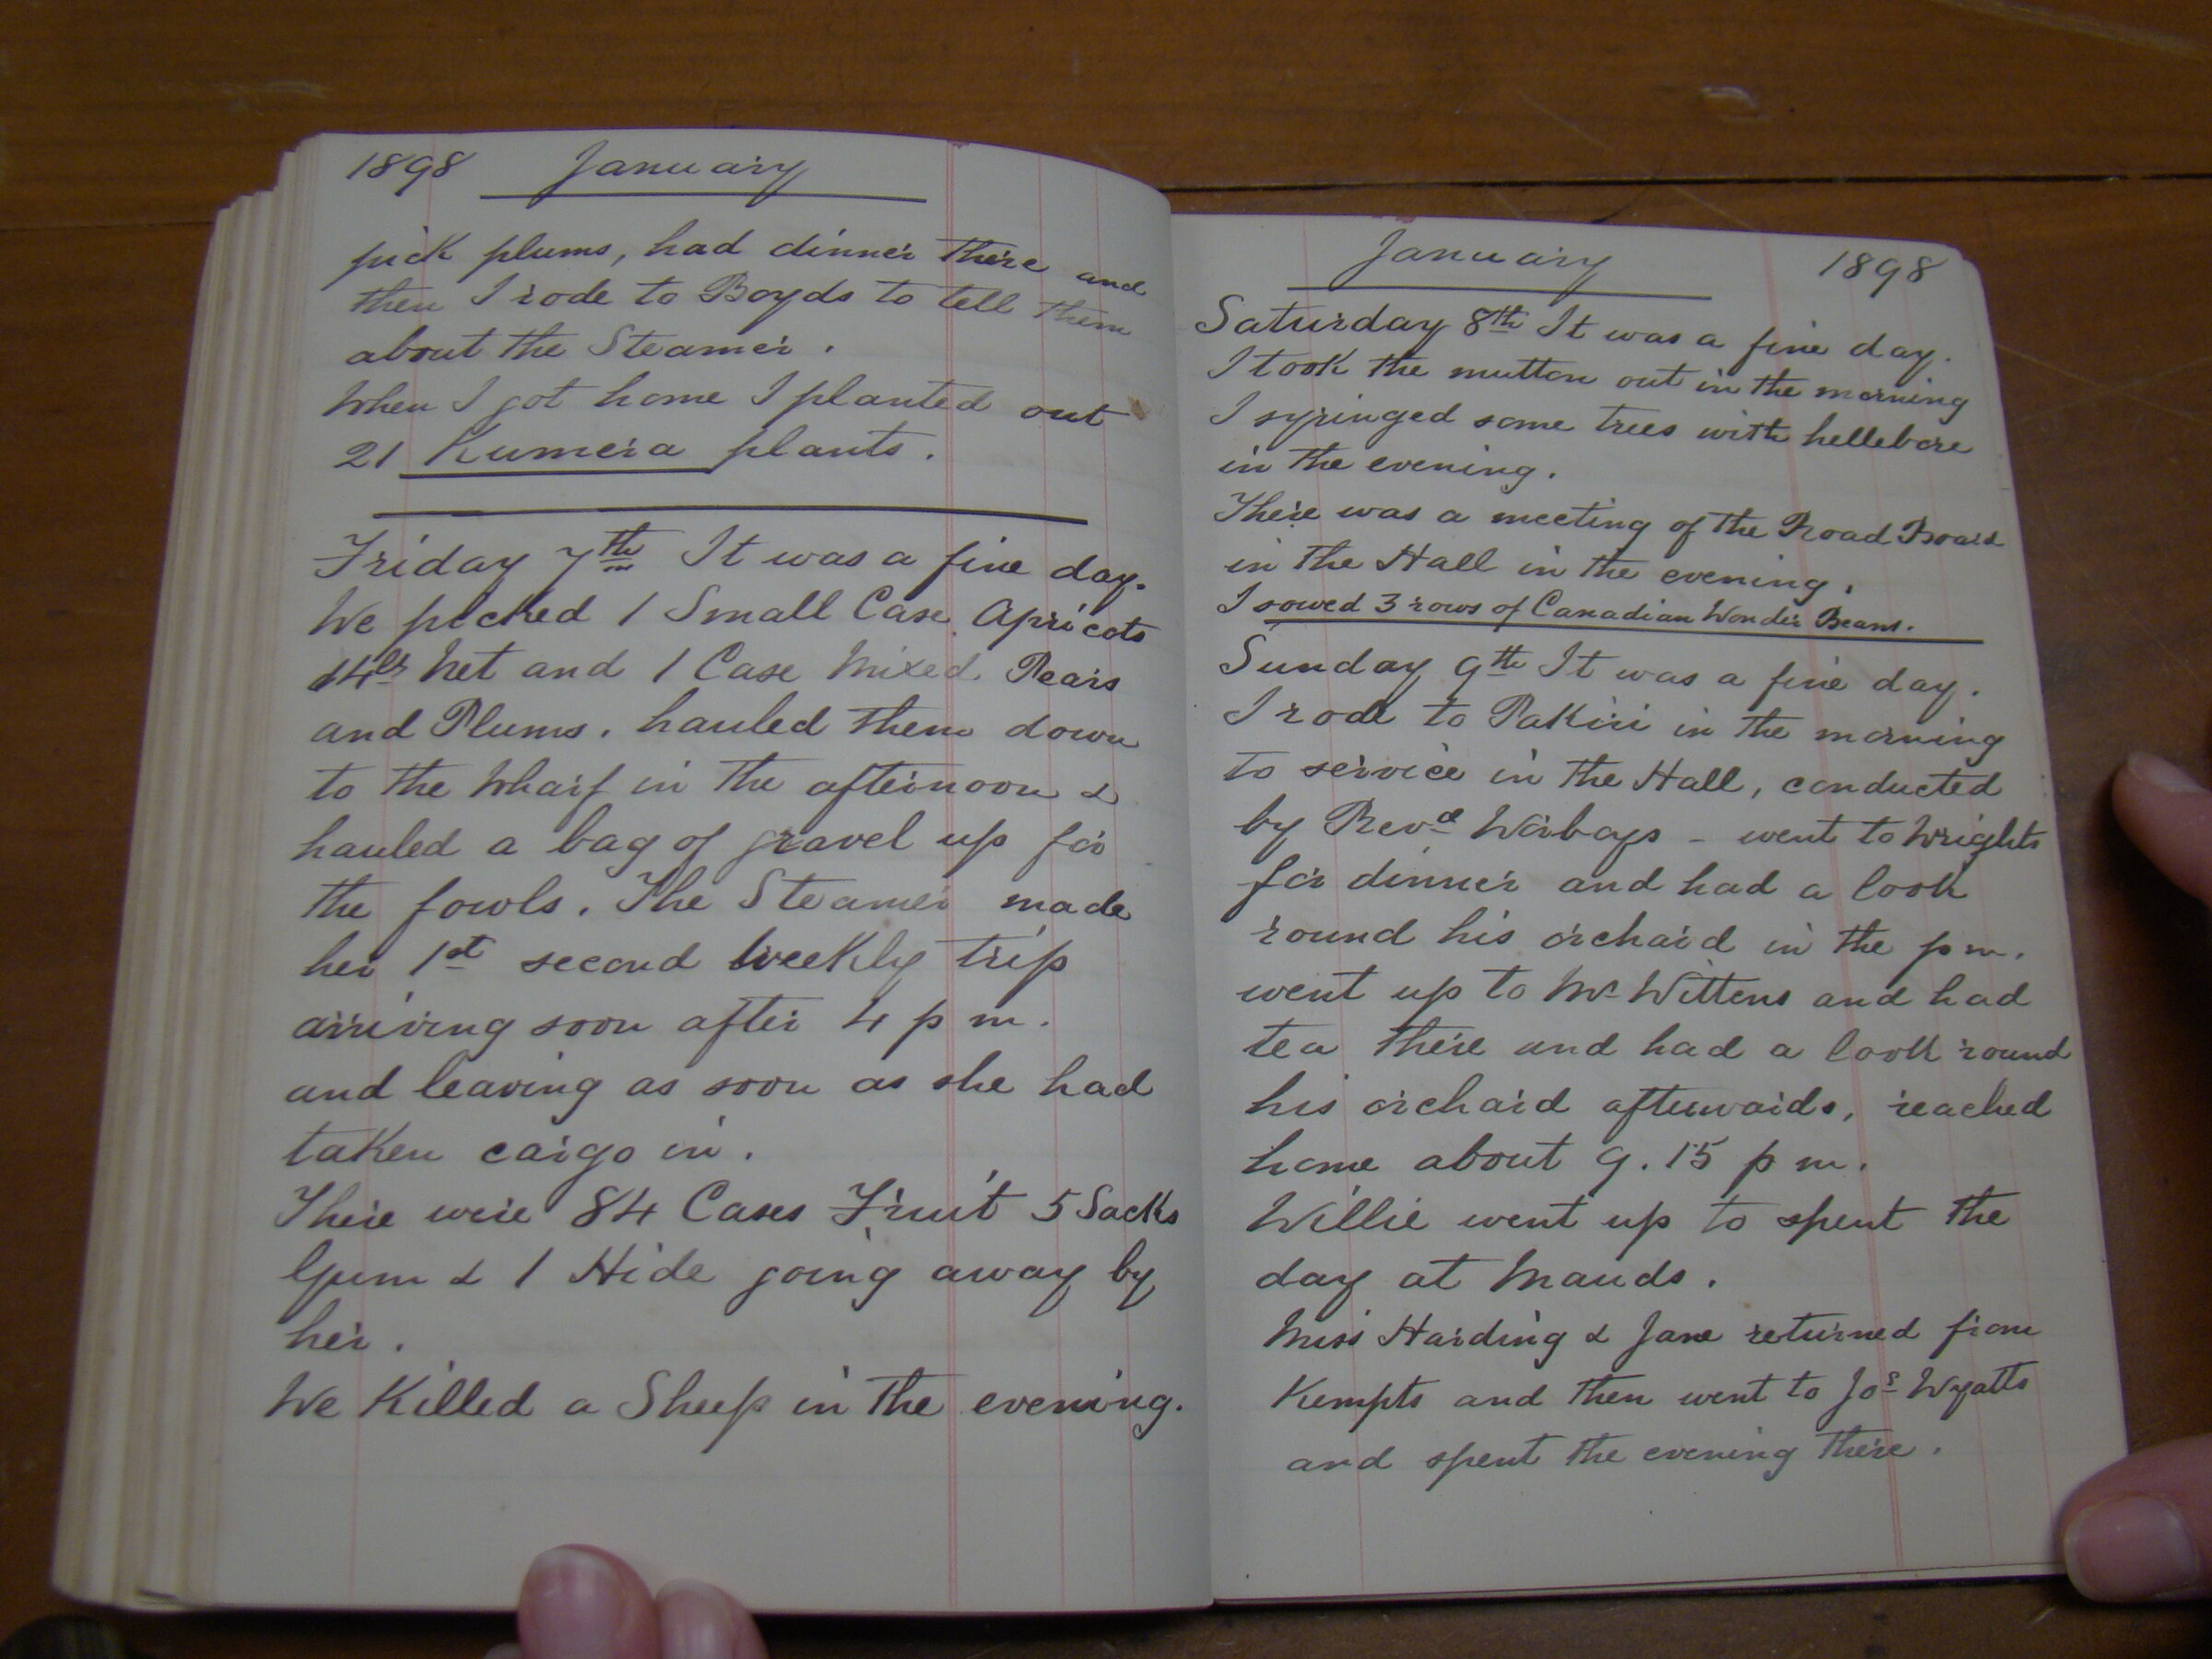 1898 January
pick plums, had dinner there and
then I rode to Boyds to tell them
about the Steamer.
When I got home I planted out
21 Kumera plants.
Friday 7th It was a fine day.
We picked 1 Small Case Apricots
14lbs Net and 1 Case Mixed Pears
and Plums. hauled them down
to the Wharf in the afternoon &
hauled a bag of gravel up for
the fowls. The Steamer made
her 1st second weekly trip
arriving soon after 4 p m.
and leaving as soon as she had
taken cargo in.
There were 84 Cases Fruit 5 Sacks
Gum & 1 Hide going away by
her.
We Killed a Sheep in the evening.
January 1898
Saturday 8th It was a fine day.
I took the mutton out in the morning
I syringed some trees with hellebore
in the evening.
There was a meeting of the Road Board
in the Hall in the evening.
I sowed 3 rows of Canadian Wonder Beans.
Sunday 9th It was a fine day.
I rode to Pakiri in the morning
to service in the Hall, conducted
by Revd Worboys - went to Wrights
for dinner and had a look
round his orchard in the p m.
went up to Mr Wittens and had
tea there and had a look round
his orchard afterwards, reached
home about 9.15 p m.
Willie went up to spent the
day at Mauds.
Miss Harding & Jane returned from
Kempts and then went to Jos Wyatts
and spent the evening there.